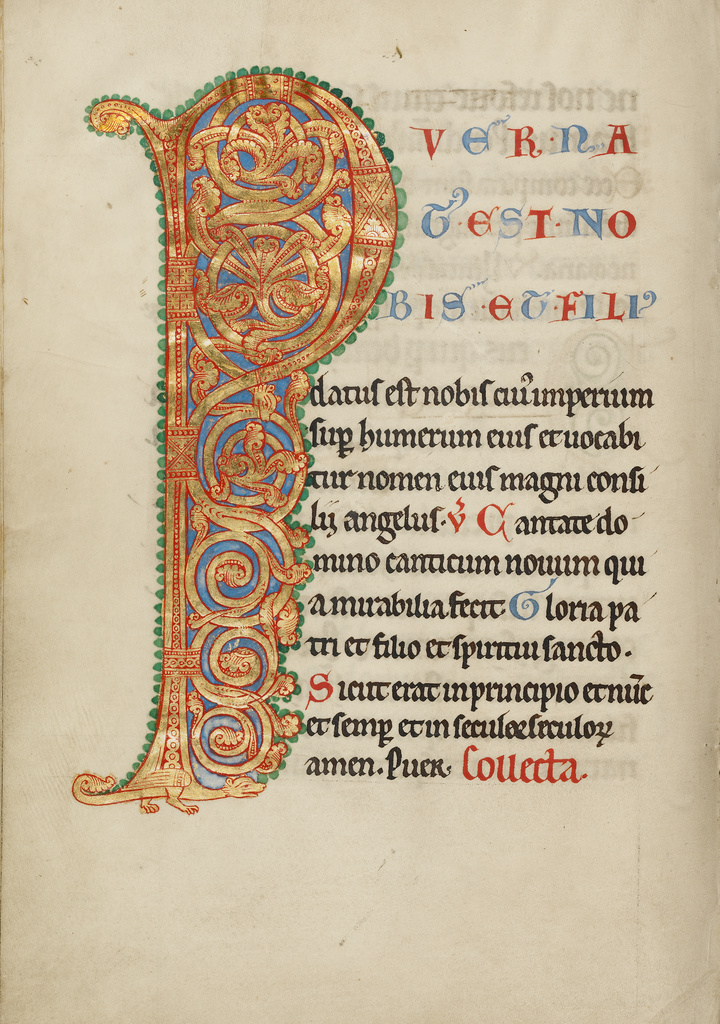 PVERNA
TVS·EST·NO
BIS·ET·FILIꝰ
datus est nobis cui᷒ imperium
suꝑ humerum eius et uocabi
tur nomen eius magni consi
lij angelus. ℣ Cantate do
mino canticum nouum qui
a mirabilia fecit Gloria pa
tri et filio et spiritui sancto.
Sicut erat in principio et nūc
et semꝑ et in secula seculoꝝ
amen. Puer. Collecta.